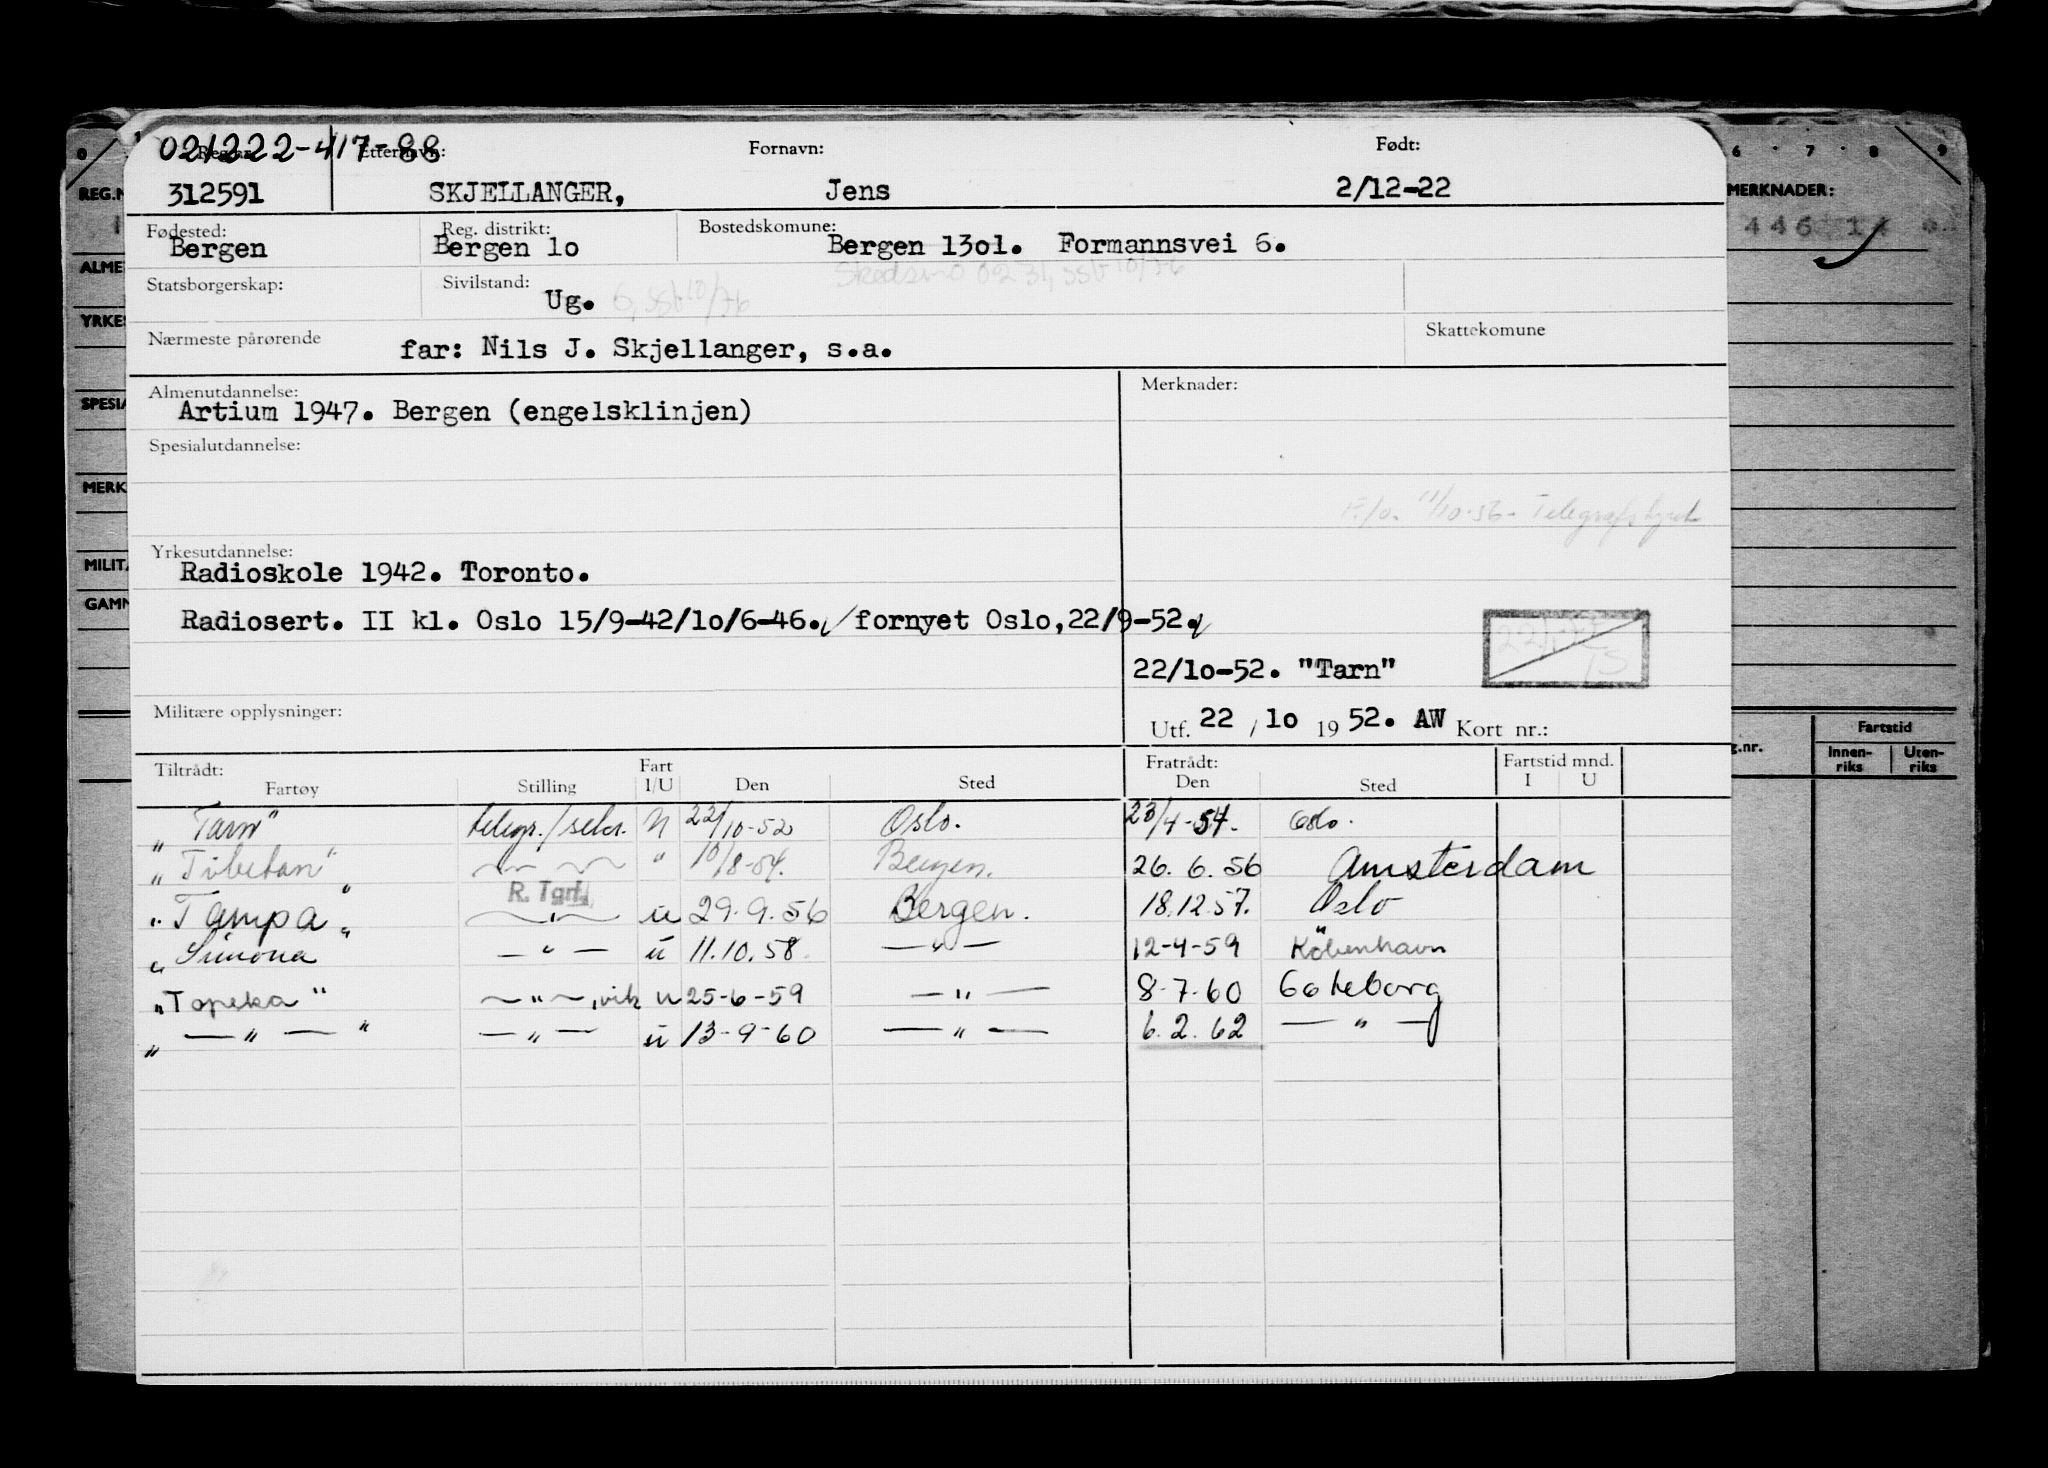 021222-417-88
Reg.nr. Etternavn: Fornavn: Født:
312591 SKJELLANGER, Jens 2/12-22
Fødested: Reg. distrikt: Bostedskomune:
Bergen Bergen 1o Bergen 13o1. Formannsvei 6.
Skedsmo 0231, ssb 10/76
Statsborgerskap: Sivilstand: Ug. 6, ssb 10/76
Nærmeste pårørende far: Nils J. Skjellanger, s.a. Skattekomune
Almenutdannelse: Merknader:
Artium 1947. Bergen (engelsklinjen)
Spesialutdannelse:
11/10-56- Telegrafstyret
Yrkesutdannelse:
Radioskole 1942. Toronto.
Radiosert. II kl. Oslo 15/9-42/1o/6-46. / fornyet Oslo,22/9-52.
22/1o-52. "Tarn"
Militære opplysninger: Utf. 22 / 1o 19 52. AW Kort nr.:
Tiltrådt: Fart Fratrådt: Fartstid mnd.
Fartøy Stilling I/U Den Sted Den Sted I U
"Tarn" telegr./sekr. U 22/10-52 Oslo. 23/4-54. Oslo.
"Tibetan" " 10/8-54. Bergen. 26. 6. 56 Amsterdam
R. Tgrf.
"Tampa" " u 29. 9. 56 Bergen. 18.12.57. Oslo
"Simona" — " — u 11.10.58. — " — 12-4-59 København
"Topeka" — " —, vik u 25-6-59 — " — 8-7-60 Goteborg
" — " — " — " — u 13-9-60 — " — 6. 2. 62 — " —
REG.N
MERKNADER:
446
ALME
YRKES
SPESIA
MERK
MILITÆ
GAMM
g.nr. Fartstid
Innen-riks Uten-riks
0 6 7 8 9